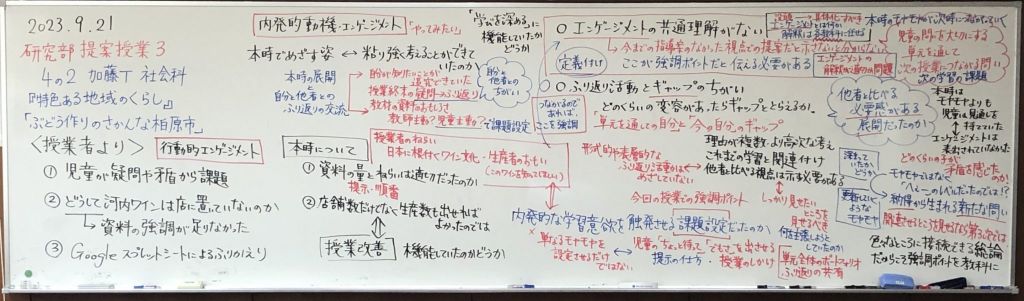 2023.9.21
研究部 提案授業3
4の2 加藤T 社会科
『特色ある地域のくらし』
「ぶどう作りのさかんな柏原市」
〈授業者より〉
行動的エンゲージメント
① 児童が疑問や矛盾から課題
② どうして河内ワインは店に置いていないのか
→ 資料の強調が足りなかった
③ Googleスプレットシートによるふりかえり
内発的動機・エンゲージメント
「やってみたい」
「学びを深める」に
機能していたか
どうか
本時でめざす姿 ↔ 粘り強く考えることができて
いたのか
本時の展開
と
自分と他者との
ふり返りの交流
自分が知りたいことが
追究できていた
授業終末の疑問→ふり返り
教材の資料のおもしろさ
教師主動?児童主動?で課題設定
自分と
他者との
ちがい
本時について
授業者のねらい
日本に根付くワイン文化・生産者のおもい
① 資料の量とねらいは適切だったのか
提示・順番
② 店舗数だけでなく生産数も出せれば
よかったのでは
授業改善
機能していたのかどうか
○ エンゲージメントの共通理解がない
→ 今までの指導案のなかった視点での提案だと示さないと分からない
定義付け
ここが強調ポイントだと伝える必要がある
エンゲージメントの
○○ふり返り活動とギャップのちがい
どのくらいの変容があったらギャップととらえるか
つながるので
あれば、
ここを強調
「単元を通しての自分」と「今の自分」のギャップ
形式的や表層的な
ふり返り活動かは
めざしていない
理由が複数・より高次な考え
これまでの学習と関連付け
他者と比べる視点は示す必要がある
今回の授業での強調ポイント
しっかり見せたい
ところを
見せるべき
内発的な学習意欲を触発させる課題設定だったのか
× 単なるモヤモヤを
設定させるだけ
ではない
児童の「ちょっと待って」「でもさ」を出させる
提示の仕方・授業のしかけ
単元全体のポートフォリオ
ふり返りの共有
本時のモヤモヤが次時につながっていく
児童の問いを大切にする
単元を通して
次の授業につながる問い
次の学習の課題
他者と比べる
必要感がある
展開だったのか
本時は
モヤモヤよりも
児童は見通しを
持てていた
エンゲージメントは
表出されていなかった
どのくらいの子が
矛盾を感じたのか!
深まって
いたか
どうか
更新して
いくような
モヤモヤ
モヤモヤではなく
「へぇ〜」のレベルだったのでは!?
納得から生まれる新たな問い
色々なところに搭続できる総論
だからこそ強調ポイントを教科に